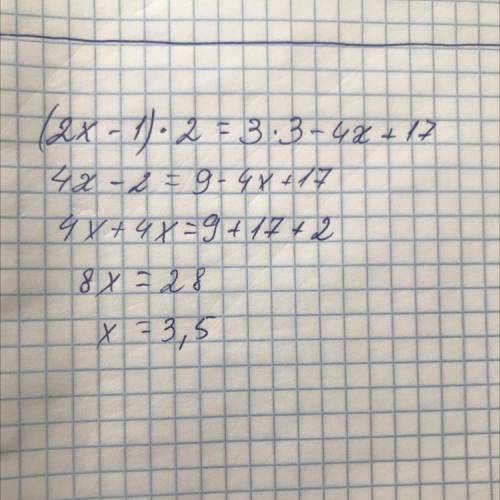 (2x - 1) · 2 = 3 · 3 - 4x + 17
4x - 2 = 9 - 4x + 17
4x + 4x = 9 + 17 + 2
8x = 28
x = 3,5